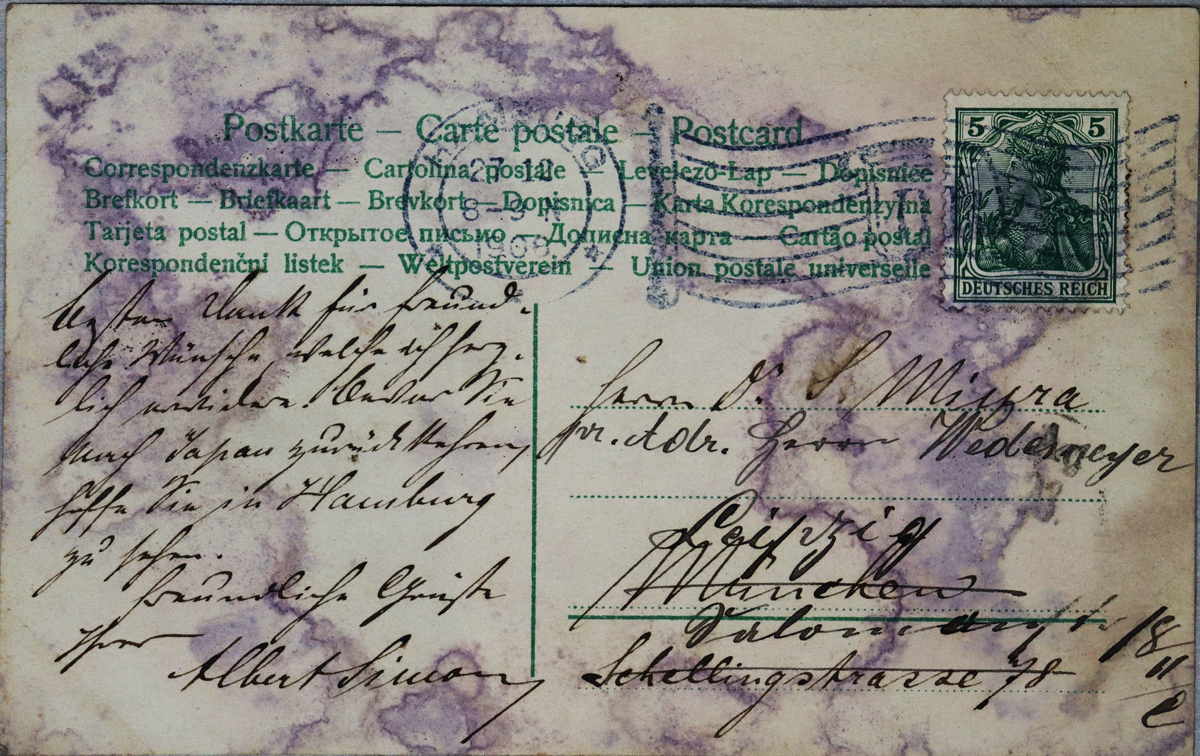 Postkarte — Carte postale — Postcard
Correspondenzkarte — Cartolina postale — Levelezö-Lap — Dopisnice
Brefkort — Briefkaart — Brevkort — Dopisnica — Karta Korespondenzyjna
Tarjeta postal — Открытое письмо — Дописна карта — Cartão postal
Korespondenční listek — Weltpostverein — Union postale universelle
27 12
8–9 N
5 5
DEUTSCHES REICH
Besten Dank für freund-
liche Wünsche, welche ich herz-
lich erwidere. Bevor Sie
nach Japan zurückkehren,
hoffe Sie in Hamburg
zu sehen.
Freundliche Grüße
Ihr
Albert Simon
Herrn Dr. S. Miura
pr. Adr. Herrn Wedemeyer
Leipzig
München
Salomonstr. 18
II
Schellingstrasse 78